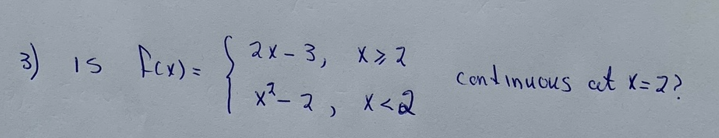 3) is f(x) = { 2x-3, x≥2
x²-2, x<2
continuous at x=2?